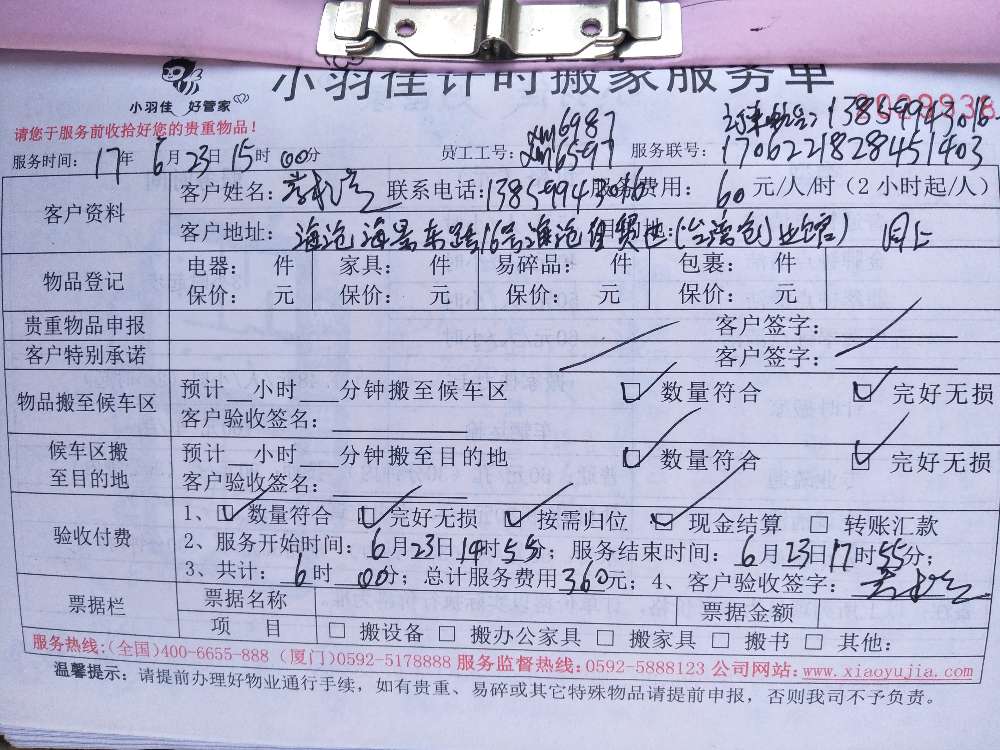 小羽佳计时搬家服务单
小羽佳 好管家
请您于服务前收拾好您的贵重物品!
xm6987 订单电话:13859943016
服务时间: 17年 6月23日15时00分 员工工号:xm6597 服务联号:1706221828451403
客户资料 客户姓名: 联系电话:13859943016 服务费用: 60 元/人/时(2小时起/人)
客户地址: 海沧海景东路16号海沧自贸区(台湾创业馆) 目的地: 同上
物品登记 电器: 件 家具: 件 易碎品: 件 包裹: 件
保价: 元 保价: 元 保价: 元 保价: 元
贵重物品申报 客户签字:
客户特别承诺 客户签字:
物品搬至候车区 预计__小时___分钟搬至候车区 ☑ 数量符合 ☑ 完好无损
客户验收签名:
候车区搬至目的地 预计__小时___分钟搬至目的地 ☑ 数量符合 ☑ 完好无损
客户验收签名:
验收付费 1、☑ 数量符合 ☑ 完好无损 ☑ 按需归位 ☑ 现金结算 □ 转账汇款
2、服务开始时间: 6月23日14时55分; 服务结束时间: 6月23日17时55分;
3、共计: 6时 00分; 总计服务费用360元; 4、客户验收签字:
票据栏 票据名称 票据金额
项 目 □ 搬设备 □ 搬办公家具 □ 搬家具 □ 搬书 □ 其他:
服务热线:(全国)400-6655-888 (厦门)0592-5178888 服务监督热线:0592-5888123 公司网站:www.xiaoyujia.com
温馨提示: 请提前办理好物业通行手续,如有贵重、易碎或其它特殊物品请提前申报,否则我司不予负责。